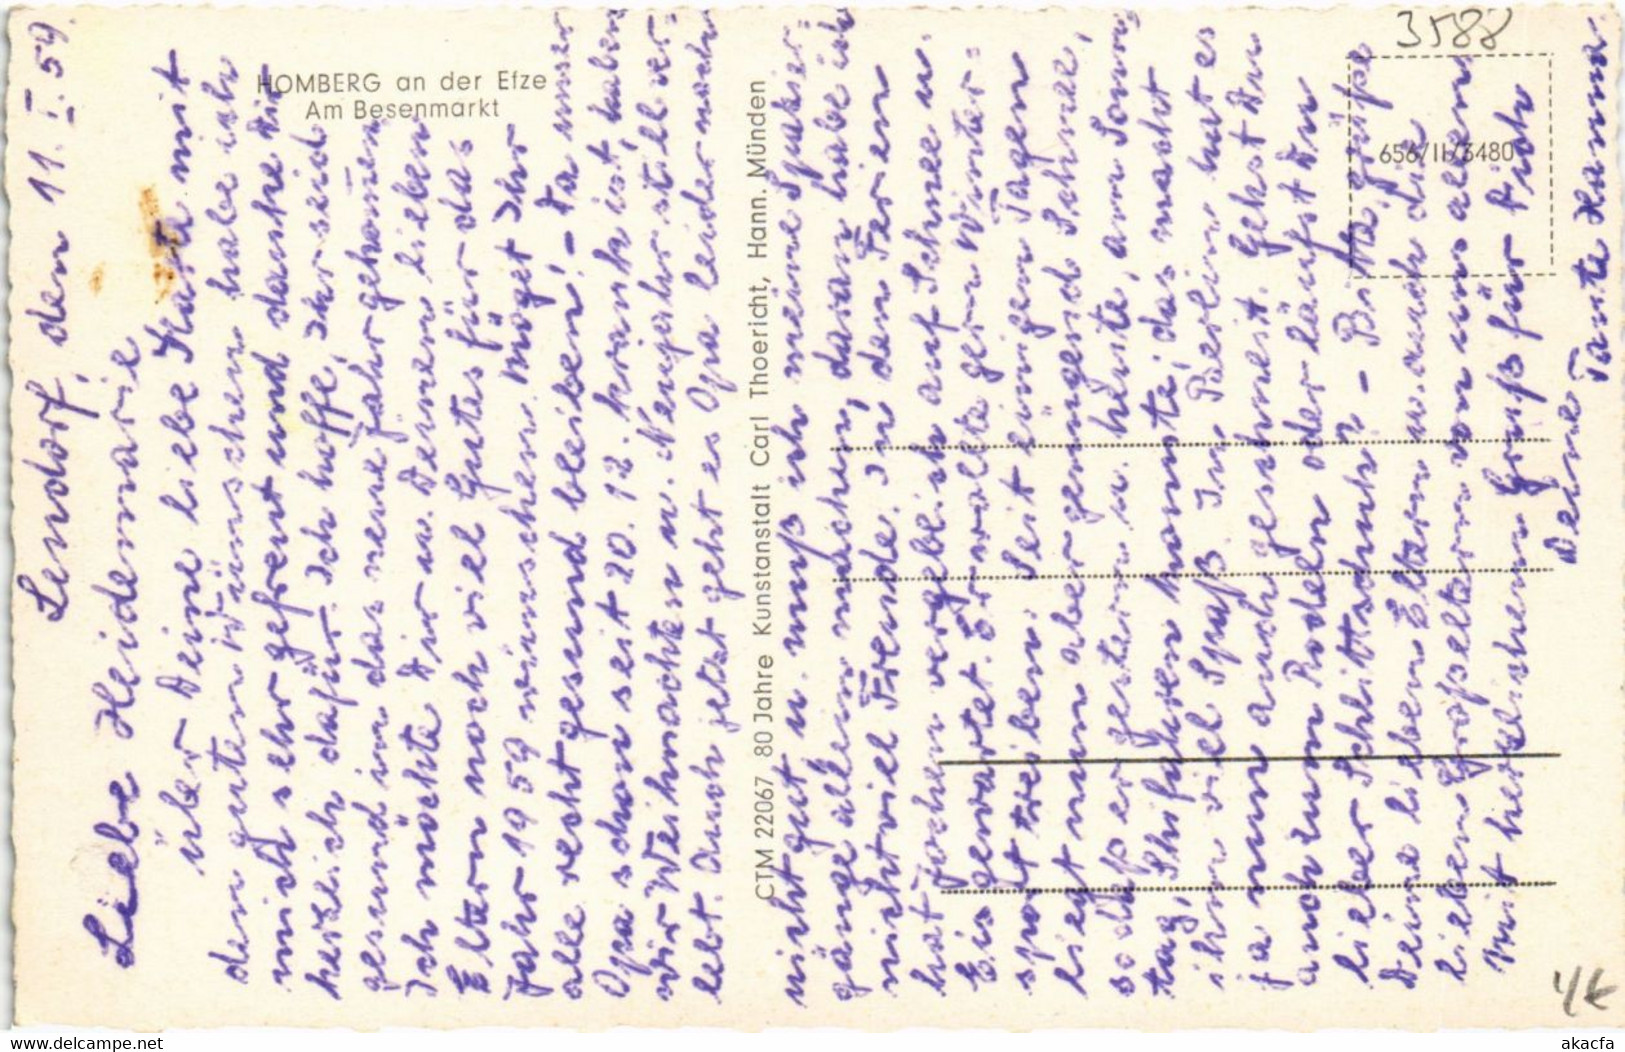 Lendorf, den 11. I. 59.
Liebe Heidemarie
über Deine liebe Karte mit
den guten Wünschen habe ich
mich sehr gefreut und danke Dir
herzlich dafür. Ich hoffe, Ihr seid
gesund in das neue Jahr gekommen
Ich möchte Dir u. Deinen lieben
Eltern noch viel Gutes für das
Jahr 1959 wünschen. Möget Ihr
alle recht gesund bleiben! - Da unser
Opa schon seit 20. 12. krank ist, haben
wir Weihnachten u. Neujahr still ver-
lebt. Auch jetzt geht es Opa leider noch
nicht gut u. muß ich meine Spazier-
gänge allein machen, daran habe ich
nicht viel Freude. In den Ferien
hat Jochen vergeblich auf Schnee u.
Eis gewartet. Er wollte gern Winter-
sport treiben. Seit einigen Tagen
liegt nun aber genügend Schnee,
sodaß er gestern u. heute, am Sonn-
tag, Skifahren konnte, das macht
ihm viel Spaß. In Berlin hat es
ja nun auch geschneit. Gehst Du
auch zum Rodeln oder läufst Du
lieber Schlittschuh? - Bitte, grüße
Deine lieben Eltern u. auch die
lieben Großeltern von uns allen
Mit herzlichem Gruß für Dich
Deine Tante Hanna.
HOMBERG an der Efze
Am Besenmarkt
CTM 22067, 80 Jahre Kunstanstalt Carl Thoericht, Hann. Münden
3588
656/II/3480
4€
www.delcampe.net
akacfa